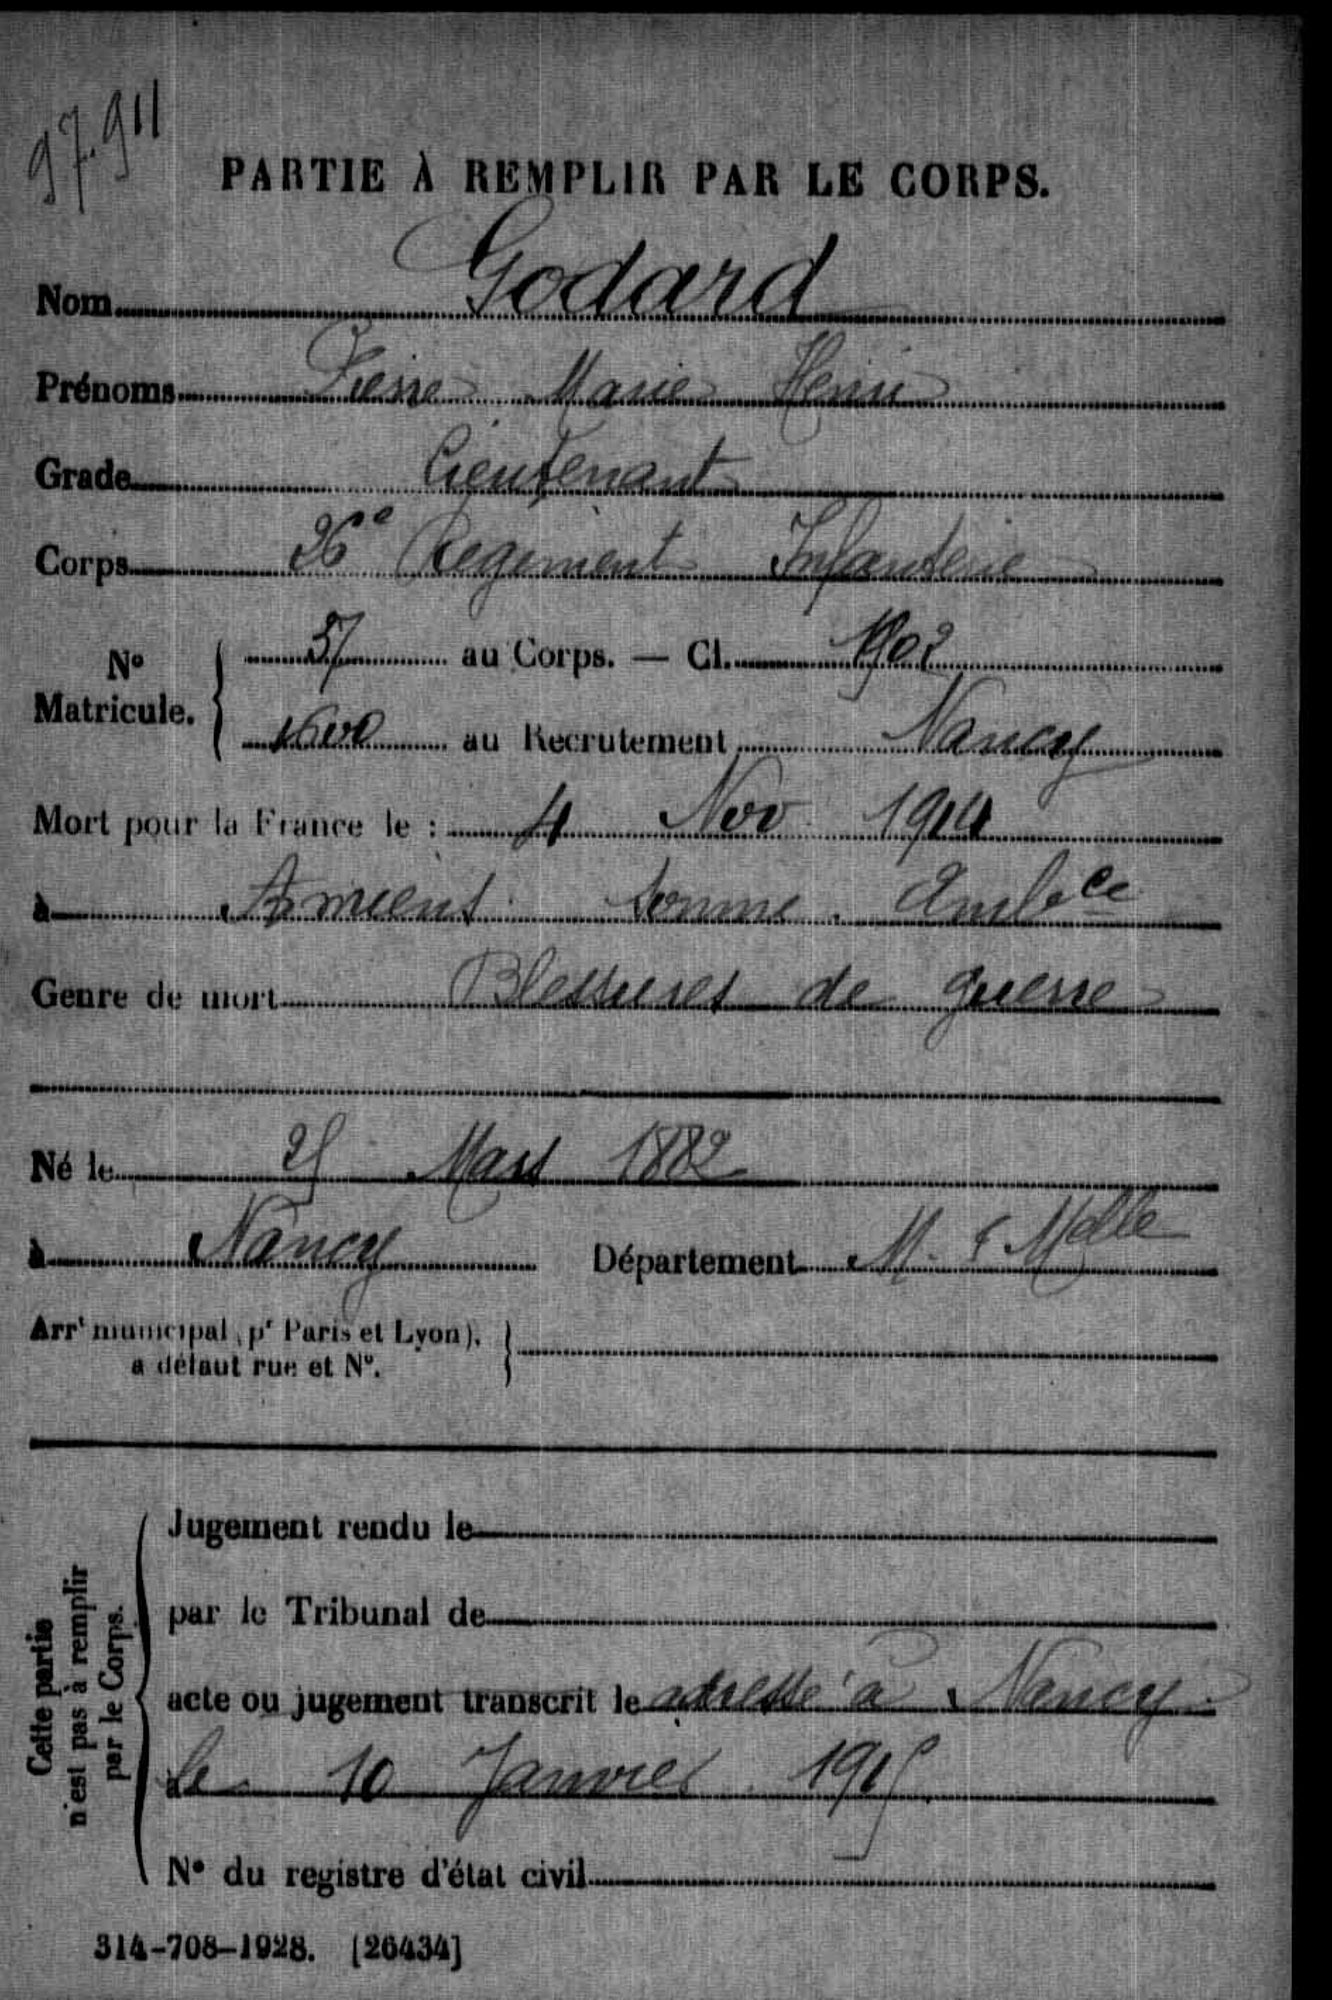 97.911
PARTIE À REMPLIR PAR LE CORPS.
Nom Godard
Prénoms Pierre Marie Henri
Grade Lieutenant
Corps 26e Regiment Infanterie
No Matricule. 57 au Corps. — Cl. 1902
1600 au Recrutement Nancy
Mort pour la France le : 4 Nov 1914
à Amiens Somme. Ambce
Genre de mort Blessures de guerre
Né le 25 Mars 1882
à Nancy Département M. & Melle
Arrt municipal (pr Paris et Lyon),
à défaut rue et No.
Cette partie
n'est pas à remplir
par le Corps.
Jugement rendu le
par le Tribunal de
acte ou jugement transcrit le adressé à Nancy
le 10 Janvier 1915
No du registre d'état civil
314-708-1928. [26434]